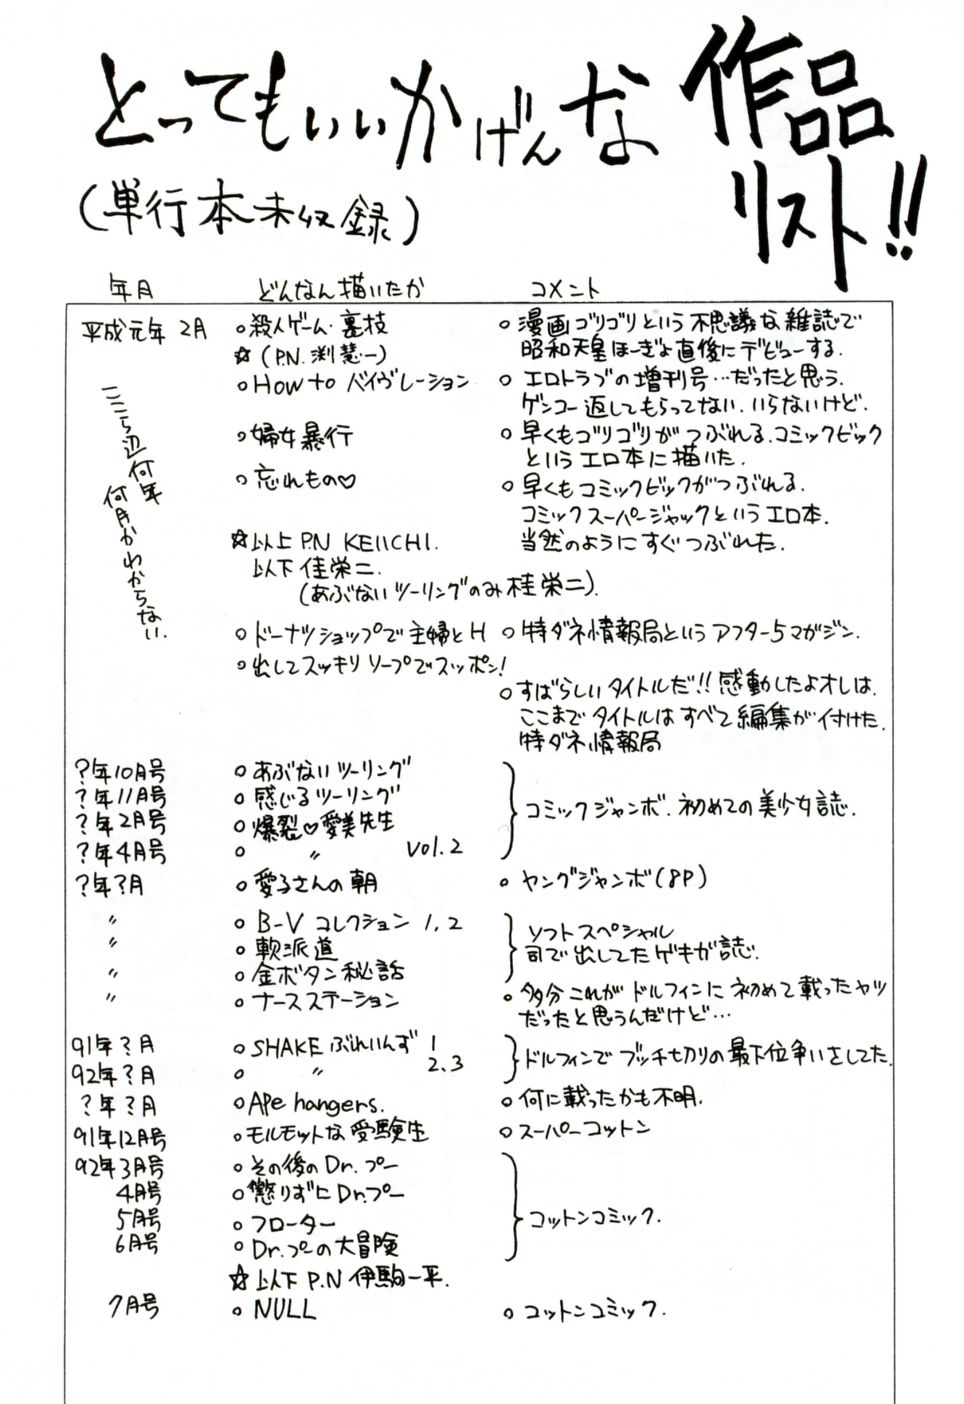 とってもいいかげんな作品
リスト!!
(単行本未収録)
年月 どんなん描いたか コメント
平成元年 2月 ○殺人ゲーム・裏技 ○漫画ゴリゴリという不思議な雑誌で
☆(P.N. 渕慧一) 昭和天皇ほーぎょ直後にデビューする.
○HOW to バイヴレーション ○エロトラブの増刊号…だったと思う.
ゲンコー返してもらってない.いらないけど.
ここら辺何年
何月かわからない.
○婦女暴行 ○早くもゴリゴリがつぶれる.コミックビック
というエロ本に描いた.
○忘れもの♡ ○早くもコミックビックがつぶれる.
コミックスーパージャックというエロ本.
☆以上 P.N KEIICHI. 当然のようにすぐつぶれた.
以下 佳栄二.
(あぶないツーリングのみ桂栄二).
○ドーナツショップで主婦とH ○特ダネ情報局というアフター5マガジン.
○出してスッキリソープでスッポン!
○すばらしいタイトルだ!!感動したよオレは.
ここまでタイトルはすべて編集が付けた.
特ダネ情報局
?年10月号 ○あぶないツーリング
?年11月号 ○感じるツーリング
コミックジャンボ.初めての美少女誌.
?年2月号 ○爆裂♡愛美先生
?年4月号 ○ 〃 Vol.2
?年?月 ○愛子さんの朝 ○ヤングジャンボ(8P)
〃 ○B-V コレクション 1,2 ソフトスペシャル
〃 ○軟派道 司で出してたゲキガ誌.
〃 ○金ボタン秘話
〃 ○ナースステーション ○多分これがドルフィンに初めて載ったヤツ
だったと思うんだけど…
91年?月 ○SHAKE ぶれいんず 1
ドルフィンでブッチ切りの最下位争いをしてた.
92年?月 ○ 〃 2.3
?年?月 ○Ape hangers. ○何に載ったかも不明.
91年12月号 ○モルモットな受験生 ○スーパーコットン
92年3月号 ○その後のDr.プー
4月号 ○懲りずにDr.プー
5月号 ○フローター コットンコミック.
6月号 ○Dr.プーの大冒険
☆以下 P.N 伊駒一平.
7月号 ○NULL ○コットンコミック.